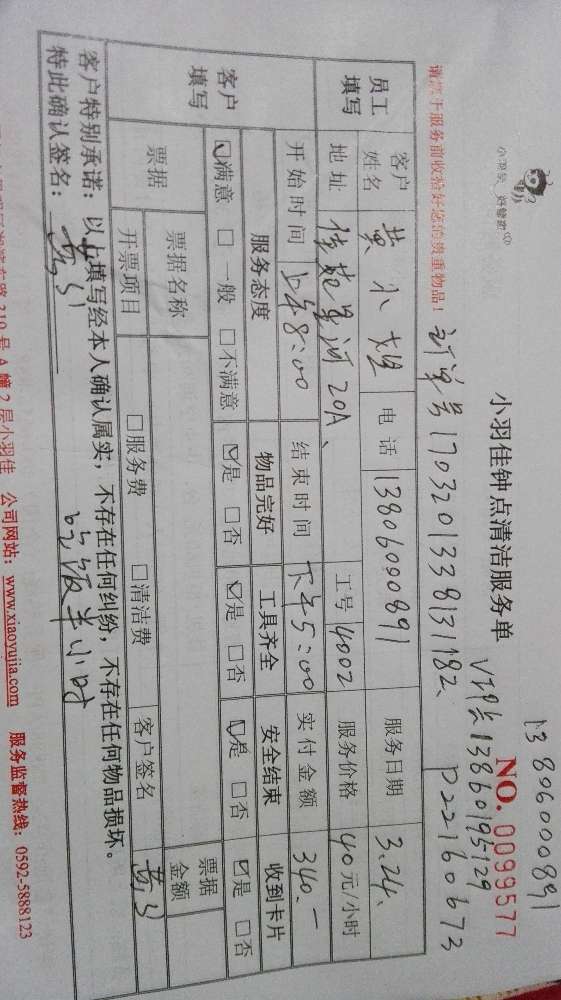 13806000891
小羽佳 好管家
小羽佳钟点清洁服务单
NO. 0099577
VIP卡13860195129
请您于服务前收捡好您的贵重物品！
订单号1703201338131182、
P22160673
员工填写
客户姓名 黄小姐 电话 13806090891 服务日期 3.24.
地址 佳苑星河20A、 工号 4002 服务价格 40元/小时
开始时间 上午8:00 结束时间 下午5:00 实付金额 340.一
客户填写
服务态度 物品完好 工具齐全 安全结束 收到卡片
☑满意 □一般 □不满意 ☑是 □否 ☑是 □否 ☑是 □否 ☑是 □否
票据 票据名称 票据金额
开票项目 □服务费 □清洁费 客户签名
客户特别承诺：以上填写经本人确认属实，不存在任何纠纷，不存在任何物品损坏。
特此确认签名：
吃饭半小时
310号A幢2层小羽佳 公司网站：www.xiaoyujia.com 服务监督热线：0592-5888123